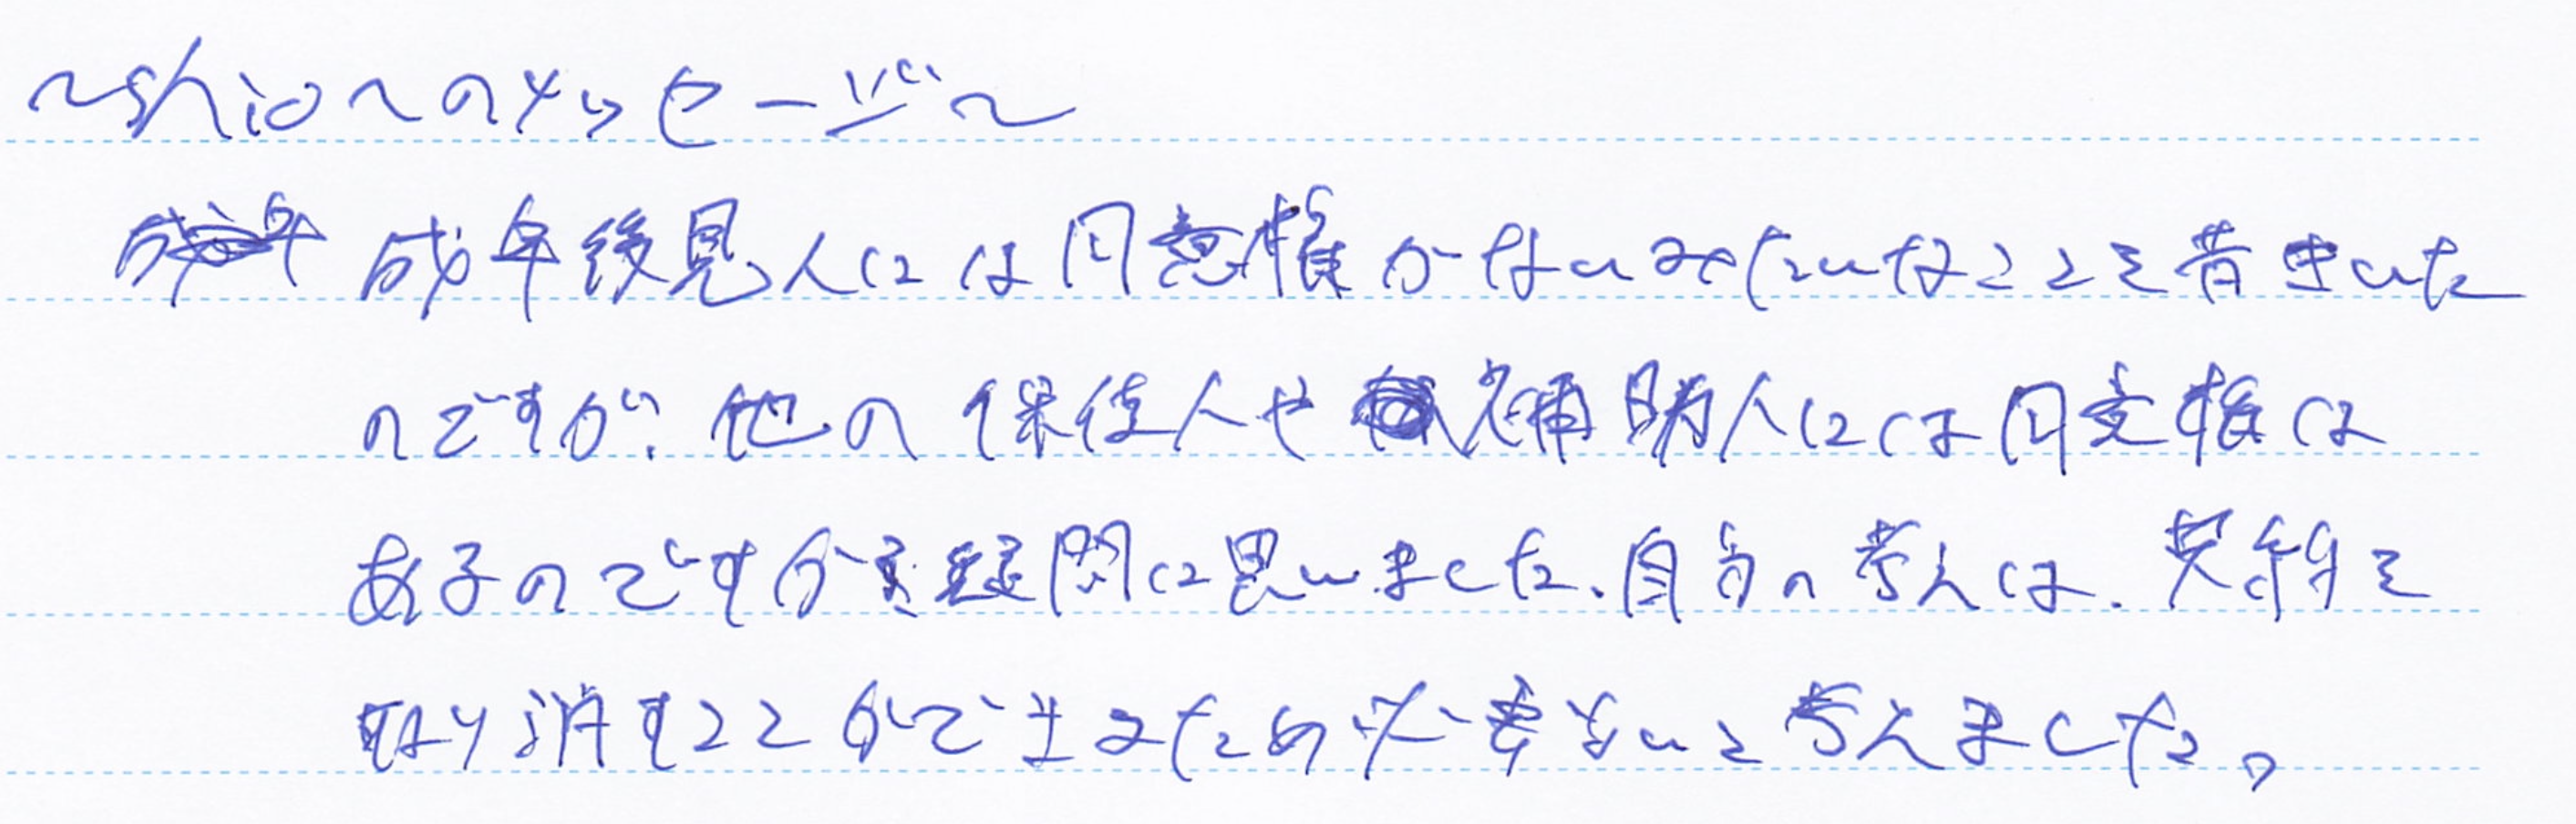 ～shioへのメッセージ～
成年後見人には同意権がないみたいなことを昔きいた
のですが、他の保佐人や補助人には同意権は
あるのですか疑問に思いました。自分の考えは、契約を
取り消すことができるため必要ないと考えました。